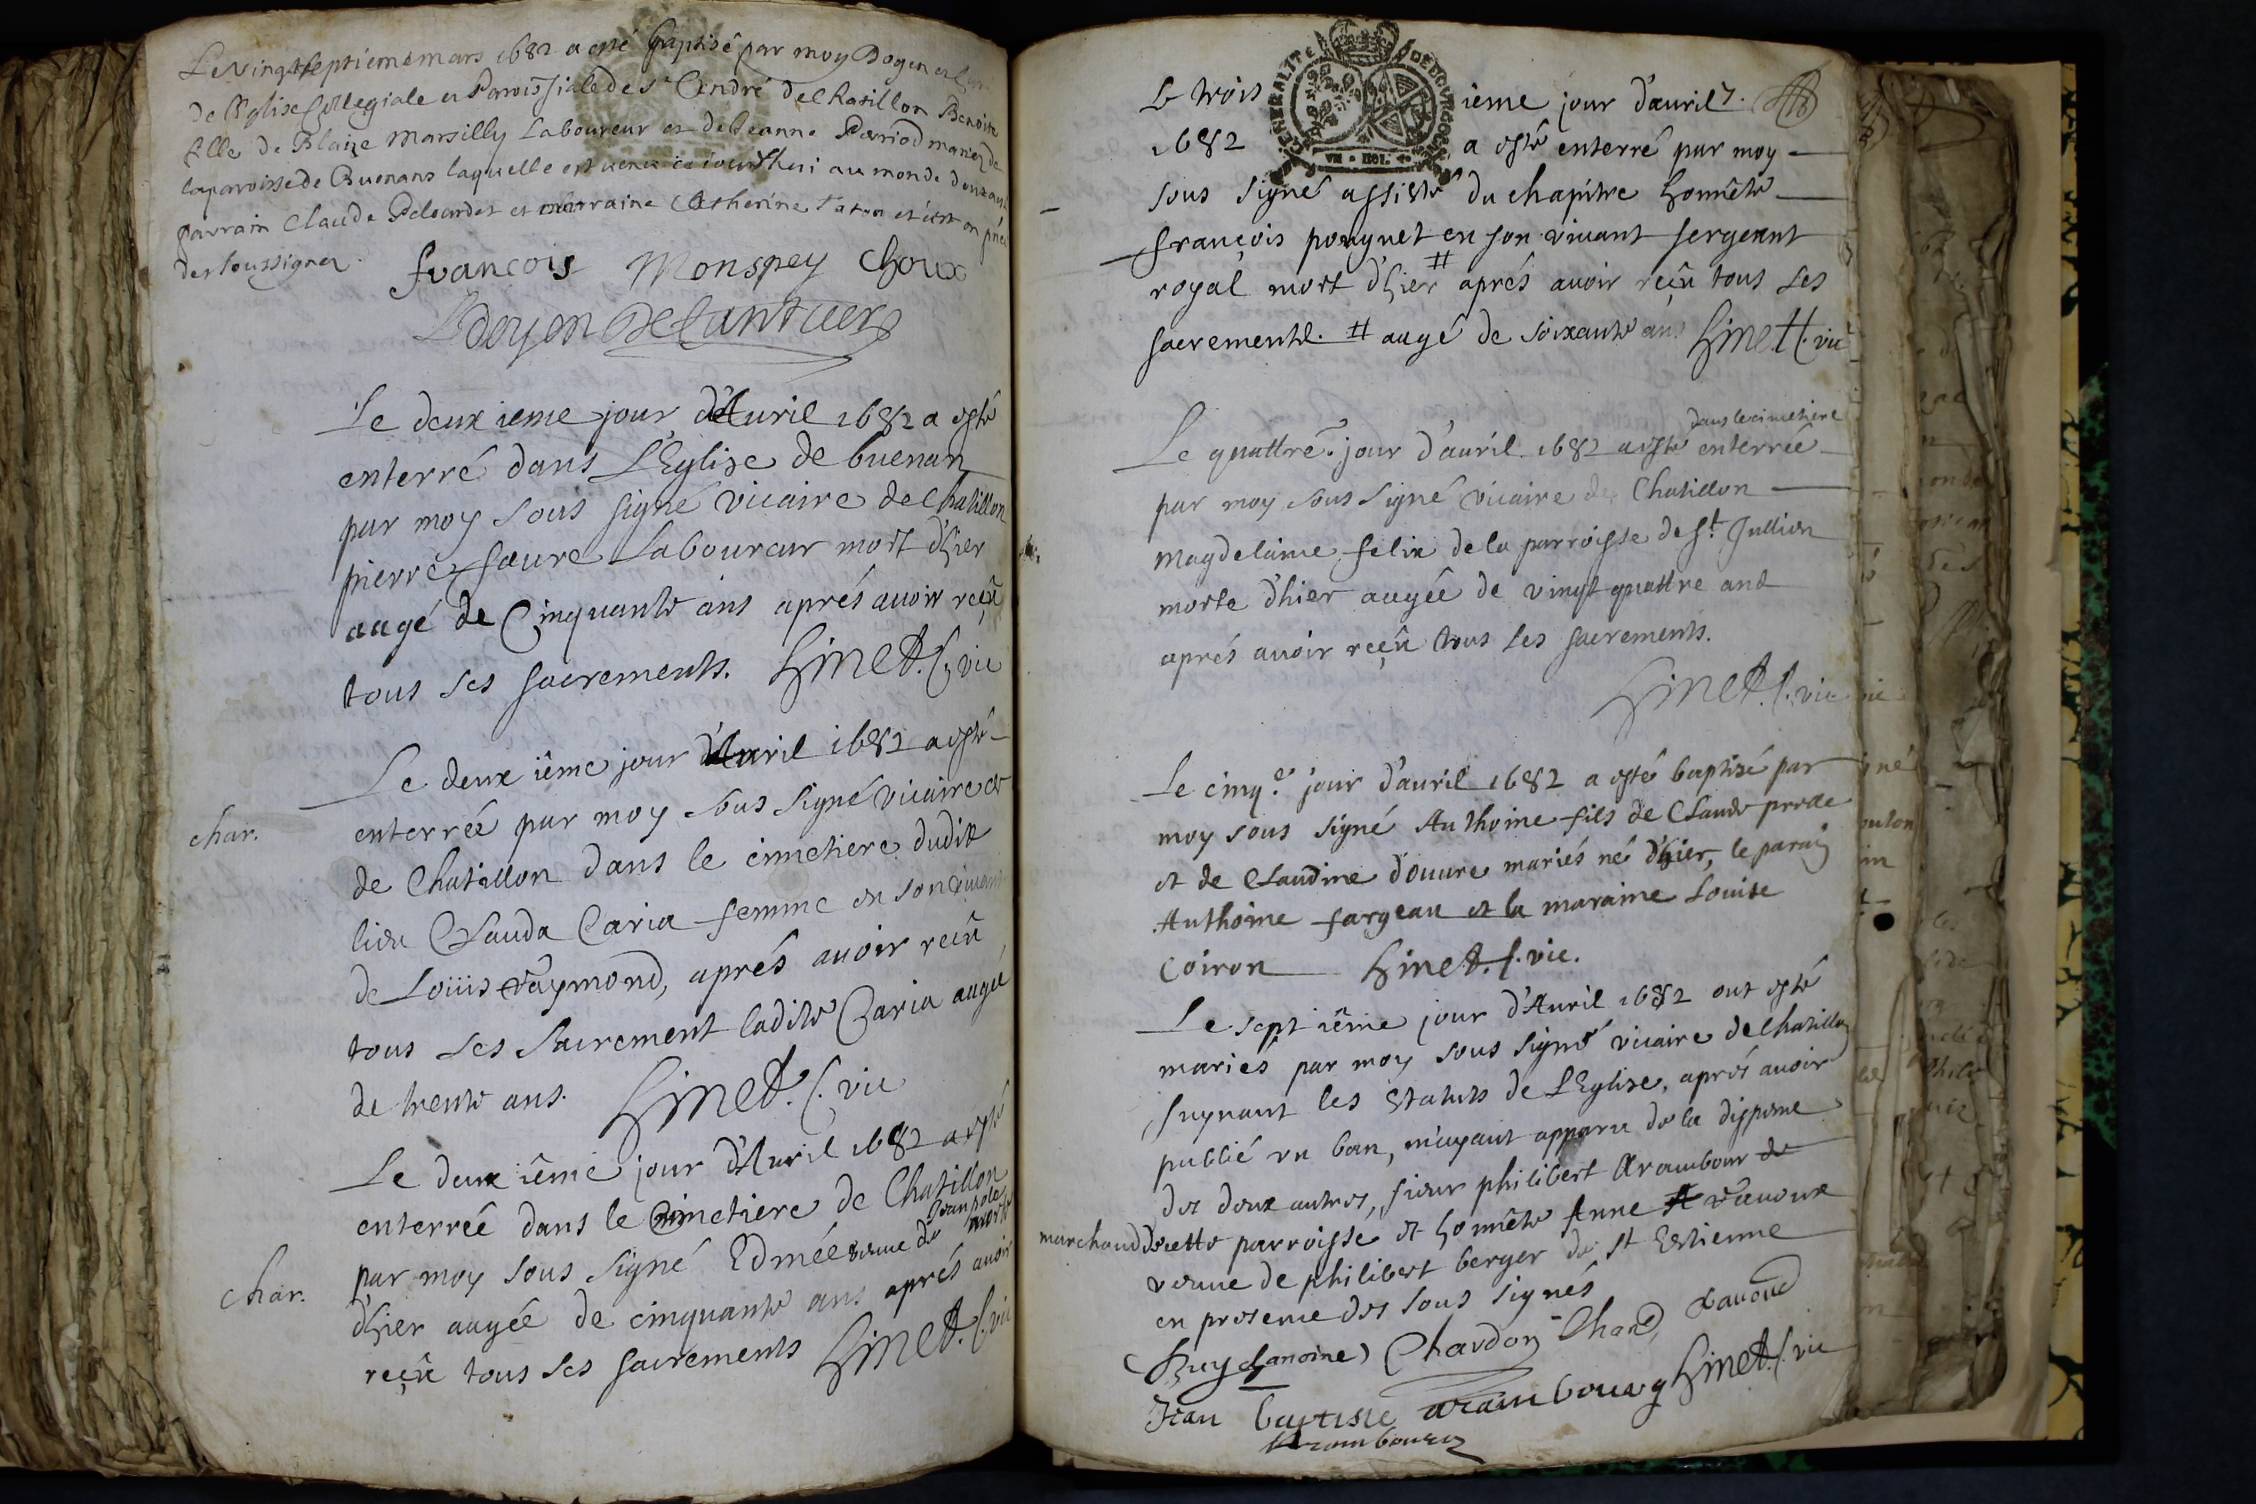 Le vingt septieme mars 1682 a esté baptisé par moy Doyen
de l'Eglise Collegiale et Parroissiale de St André de Chatillon Benoite
fille de Blaize Marsilly Laboureur et de Jeanne Perriod mariez de
la paroisse de Buenans laquelle est venue ce iourdhui au monde
parrain Claude et marraine Catherine
de soussigner
françois Monspey Choux
Ldoyen
Le deux ieme jour d'Auril 1682 a esté
enterré dans L'Eglise de buenan
par moy sous signé vicaire de Chatillon
pierre faure Laboureur mort d'hier
augé de Cinquante ans aprés auoir reçû
tous ses sacrements. hinet. vic
Le deux iême jour d'Auril 1682 a esté
char. enterreé par moy sous signé vicaire
de Chatillon dans le cimetiere dudit
lieu Clauda Caria femme en son viuant
de Loüis raymond, aprés auoir reçû
tous ses sacrement ladite Caria augée
de trente ans. hinet. vic
Le deux iême jour d'Auril 1682 a esté
enterreé dans le cimetiere de Chatillon
par moy sous signé Edmée veuue de morte
char. d'hier augée de cinquante ans aprés auoir
reçû tous ses sacrements hinet. vic
GENERALITE DE BOURGOGNE
Le trois ieme jour d'auril
1682 a esté enterré par moy
sous signé assisté du chapitre honnête
françois pouynet en son viuant sergeant
royal mort d'hier # aprés auoir reçû tous ses
sacrements. # augé de soixante ans hinet. vic
dans le cimetiere
Le quattre.e jour d'auril 1682 a esté enterreé
par moy sous signé vicaire de Chatillon
Magdelaine felix de la parroisse de St Jullien
morte d'hier augée de vingt quattre ans
aprés auoir reçû tous ses sacrements.
hinet. vic
Le cinq.e jour d'auril 1682 a esté baptisé par
moy sous signé Authoine fils de Claude
et de Claudine d'ouure mariés né d'hier, le parain
Authoine fargeau et la maraine Louise
Coiron hinet. vic.
Le sept iême jour d'Auril 1682 ont esté
mariés par moy sous signé vicaire de Chatillon
suyuant les statuts de L'Eglise, aprés auoir
publié vn ban, m'ayant apparu de la dispense
des deux autres, sieur philibert Arambour de
marchand de cette parroisse et honnête Anne rauoux
veuue de philibert berger de St Estienne
en presence des sous signés
Buy chanoine Chardon Chan. rauoux
Jean baptiste arambourg hinet. vic
Arambourg